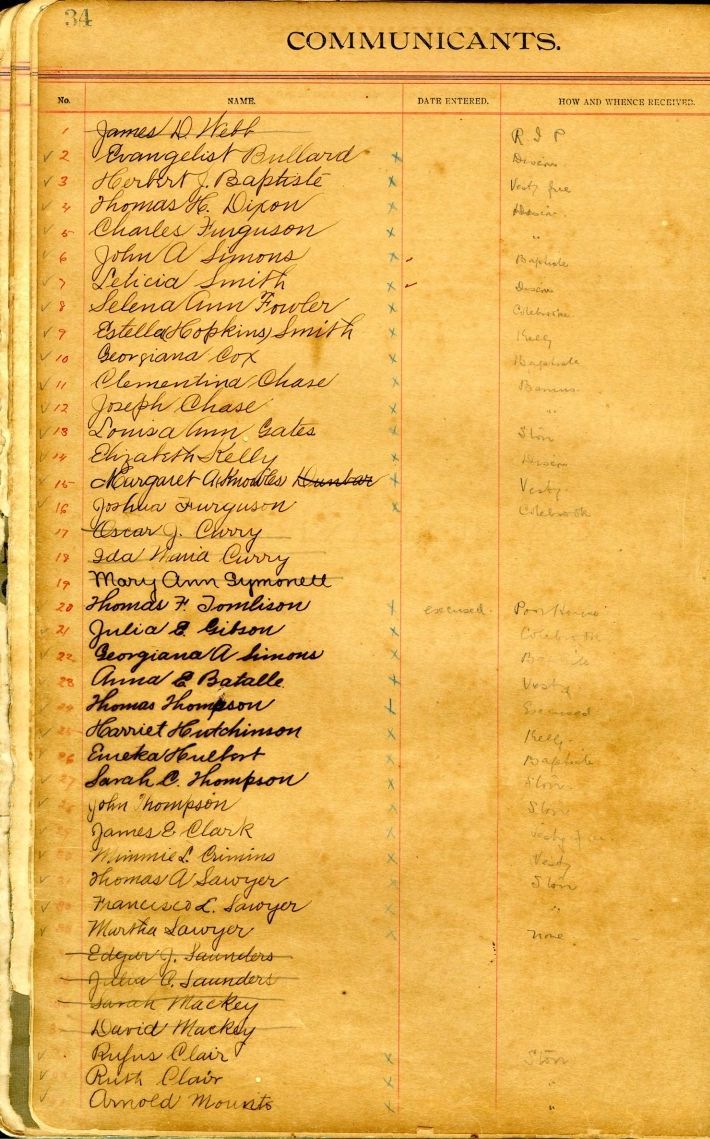 34
COMMUNICANTS.
No. NAME. DATE ENTERED. HOW AND WHENCE RECEIVED.
1 James D. Webb R I P
2 Evangelist Bullard x
3 Herbert J. Baptiste x Vesty free
4 Thomas H. Dixon x
5 Charles Furguson x "
6 John A Simons x Baptiste
7 Leticia Smith x
8 Selena Ann Fowler x Colebrook
9 Estella (Hopkins) Smith x Kelly
10 Georgiana Cox x Baptiste
11 Clementina Chase x
12 Joseph Chase x "
13 Louisa Ann Gates x Storr
14 Elizabeth Kelly x
15 Margaret A. Knowles Dunbar x Vesty
16 Joshua Furguson x Colebrook
17 Oscar J. Curry
18 Ida Curry
19 Mary Ann Symonett
20 Thomas F. Tomlison x excused. Poor House
21 Julia E. Gibson x Colebrook
22 Georgiana A Simons x
23 Anna E Batalle x Vesty
24 Thomas Thompson Excused
25 Harriet Hutchinson x Kelly
26 Emeka Hulbert x Baptiste
27 Sarah C. Thompson x Storr
28 John Thompson x Storr
29 James E Clark x Vesty
30 Mimmie L. Crimins x Vesty
31 Thomas A Sawyer x Storr
Francisco L. Sawyer x "
Martha Sawyer x None
Edgar J. Saunders
Julia A. Saunders
Sarah Mackey
David Mackey
Rufus Clair x Storr
Ruth Clair x "
Arnold Mounts x "